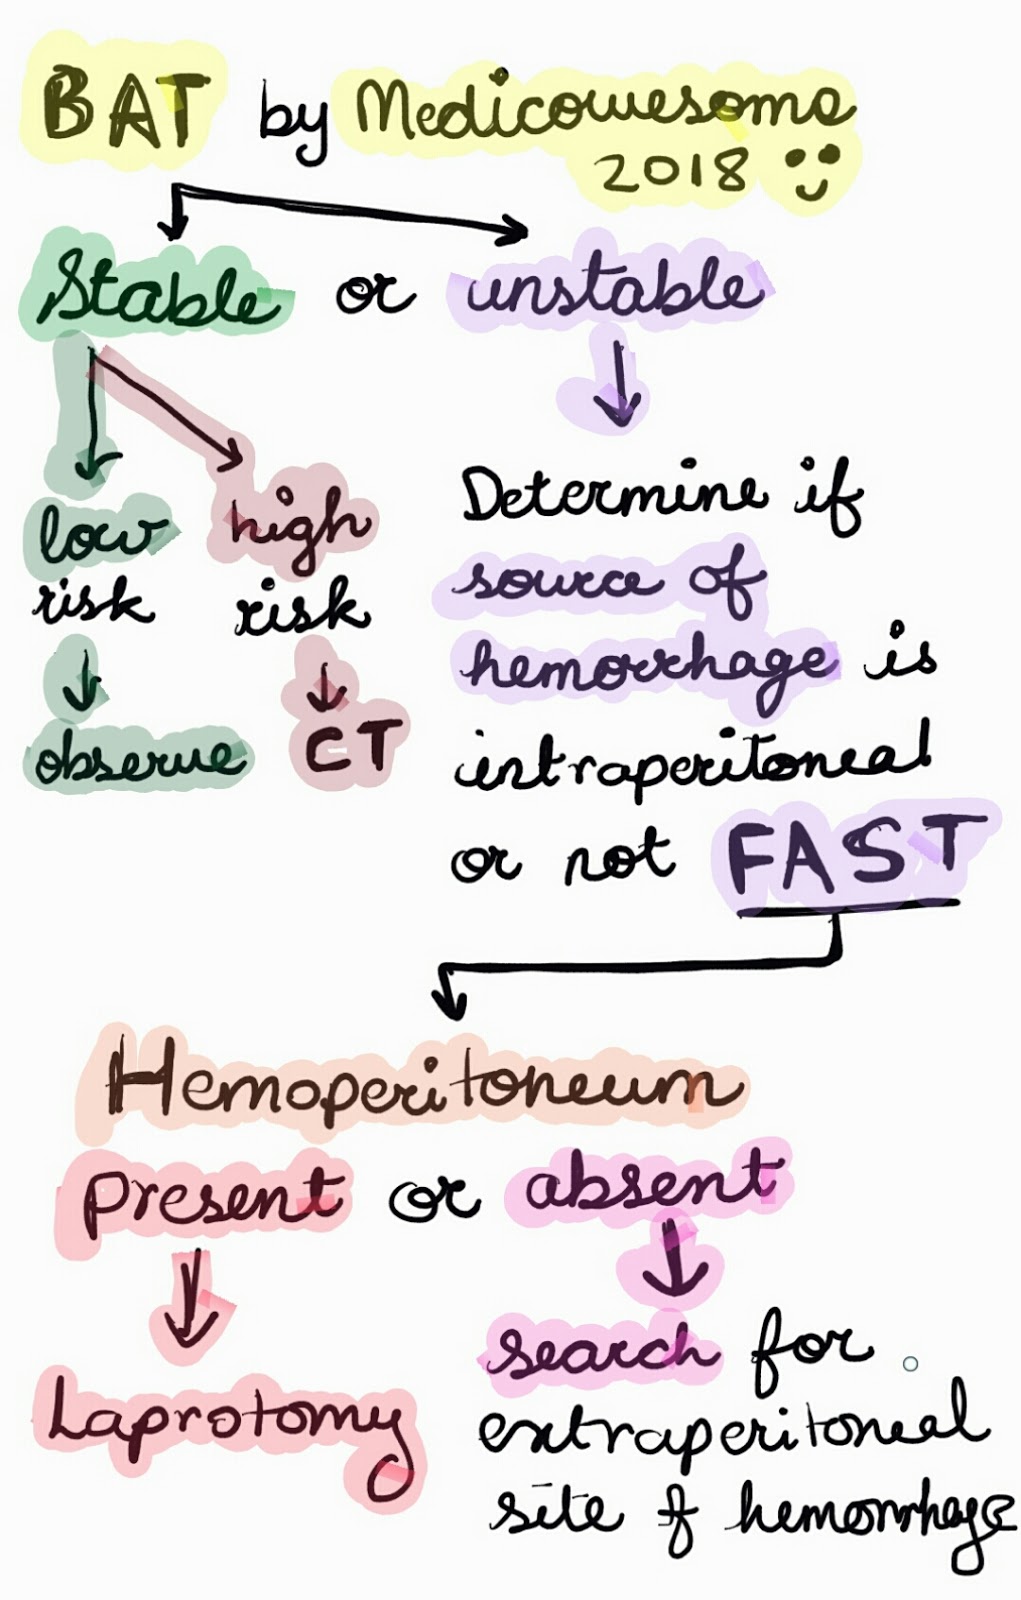 BAT by Medicowesome
2018
Stable or unstable
low high
risk risk
observe CT
Determine if
source of
hemorrhage is
intraperitoneal
or not FAST
Hemoperitoneum
Present or absent
Laprotomy
search for
extraperitoneal
site of hemorrhage